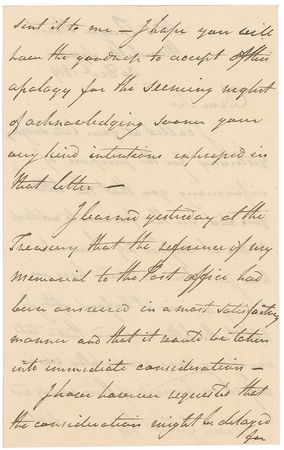 sent it to me – I hope you will
have the goodness to accept of this
apology for the seeming neglect
of acknowledging sooner your
very kind intentions expressed in
that letter –
I learned yesterday at the
Treasury that the reference of my
memorial to the Post office had
been answered in a most satisfactory
manner and that it would be taken
into immediate consideration –
I have however requested that
the consideration might be delayed
for